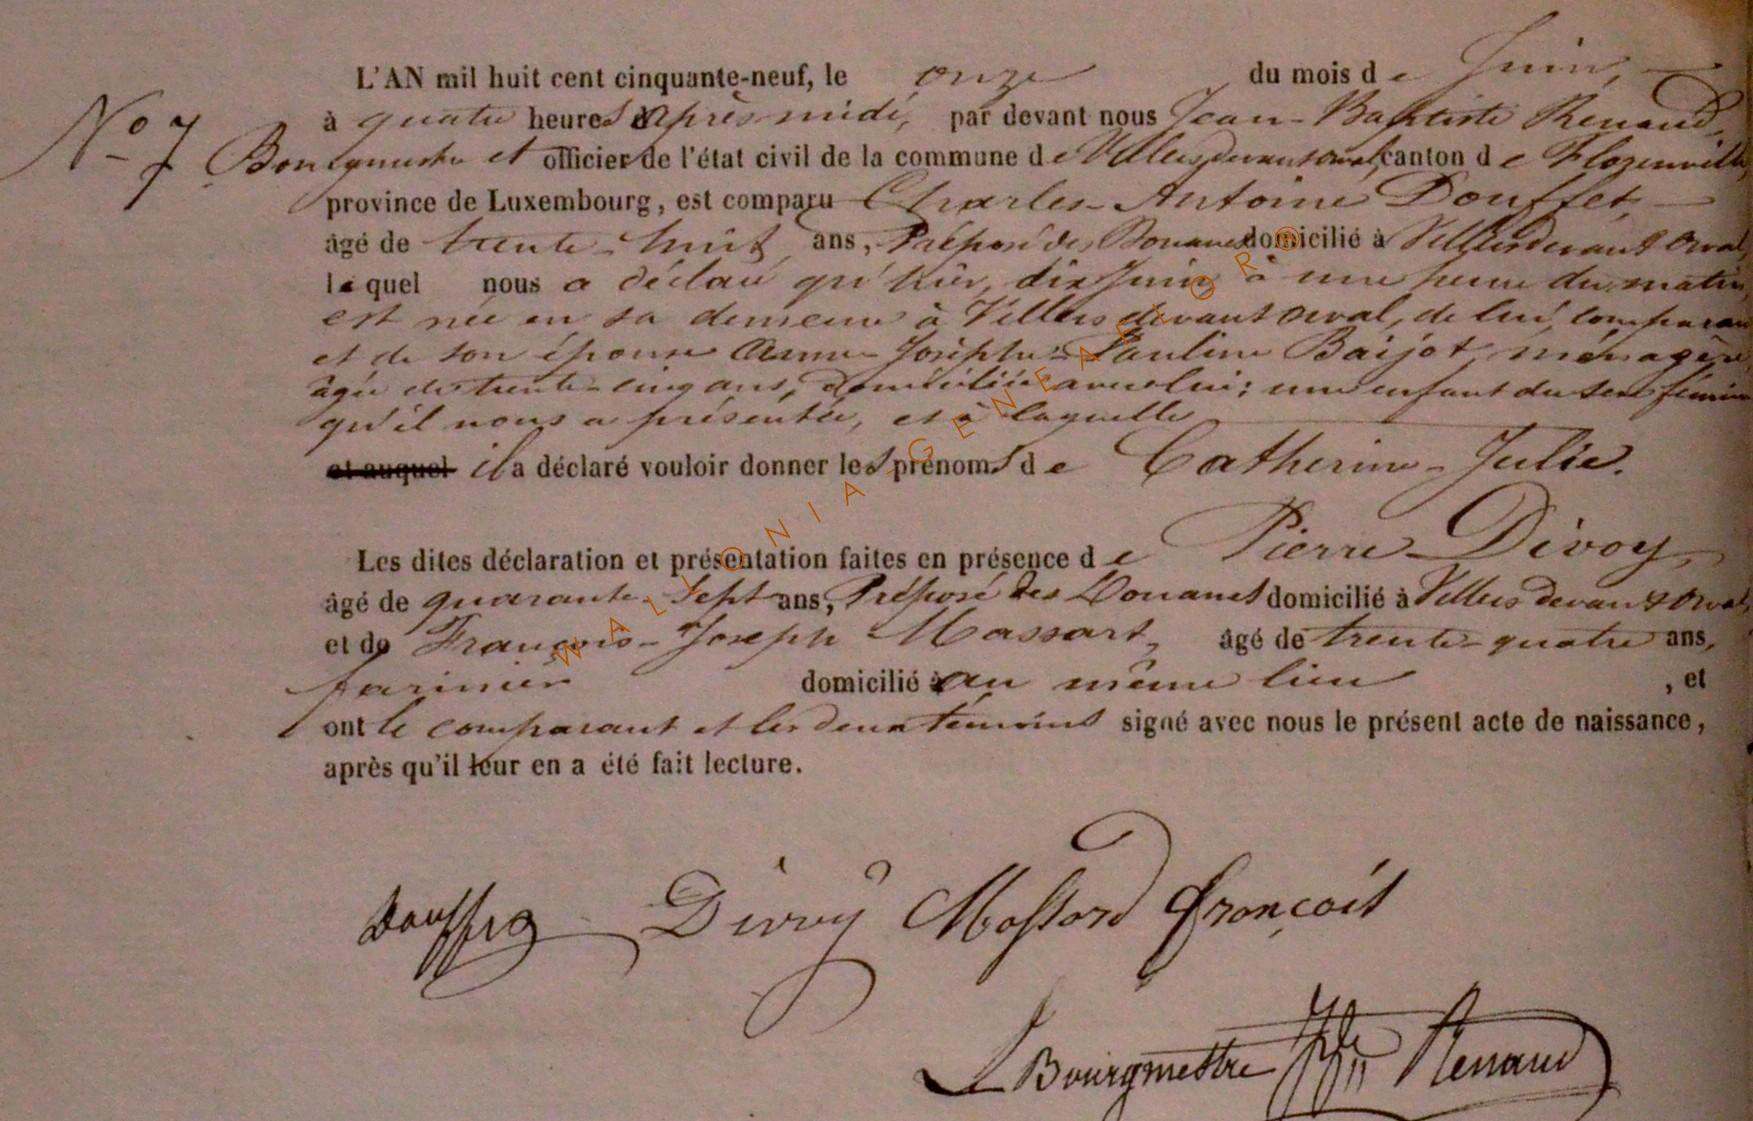 L'AN mil huit cent cinquante-neuf, le onze du mois de Juin,
No 7
à quatre heures après midi, par devant nous Jean-Baptiste Renaud,
Bourgmestre et officier de l'état civil de la commune de Villers devant Orval, canton de Florenville,
province de Luxembourg, est comparu Charles-Antoine Douffet,
âgé de trente-huit ans, Préposé des Douanes domicilié à Villers devant Orval,
lequel nous a déclaré qu'hier, dix Juin à une heure du matin,
est née en sa demeure à Villers devant Orval, de lui comparant
et de son épouse Anne-Josèphe-Pauline Baijot, ménagère,
âgée de trente-cinq ans, domiciliée avec lui; une enfant du sexe féminin
qu'il nous a présentée, et à laquelle
et auquel il a déclaré vouloir donner les prénoms de Catherine-Julie.
Les dites déclaration et présentation faites en présence de Pierre Divoy,
âgé de quarante-sept ans, Préposé des Douanes domicilié à Villers devant Orval,
et de François-Joseph Massart, âgé de trente-quatre ans,
farinier domicilié au même lieu, et
ont le comparant et les deux témoins signé avec nous le présent acte de naissance,
après qu'il leur en a été fait lecture.
Douffet Divoy Massard François
Le Bourgmestre Renaud
WALLONIA GENEALOR®